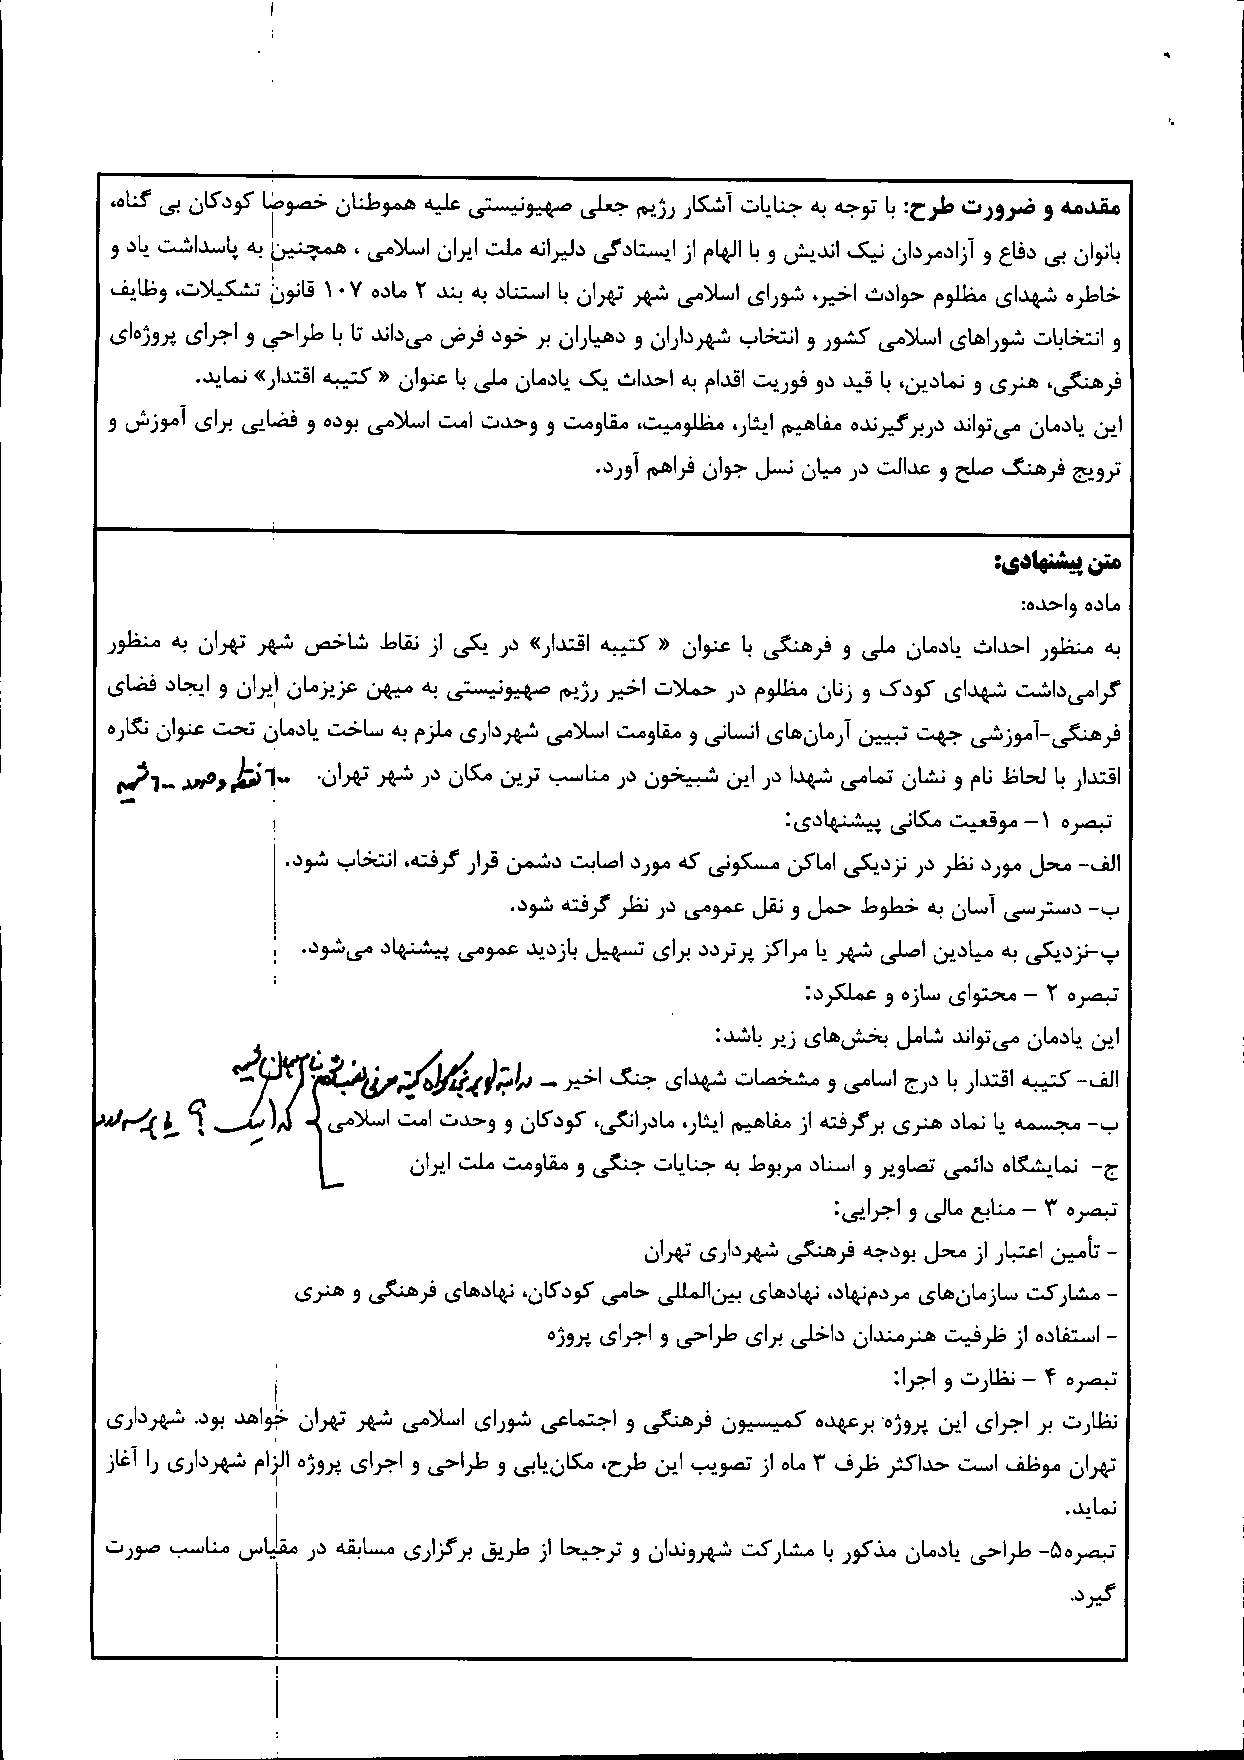 مقدمه و ضرورت طرح: با توجه به جنایات آشکار رژیم جعلی صهیونیستی علیه هموطنان خصوصا کودکان بی گناه،
بانوان بی دفاع و آزادمردان نیک اندیش و با الهام از ایستادگی دلیرانه ملت ایران اسلامی ، همچنین به پاسداشت یاد و
خاطره شهدای مظلوم حوادث اخیر، شورای اسلامی شهر تهران با استناد به بند ۲ ماده ۱۰۷ قانون تشکیلات، وظایف
و انتخابات شوراهای اسلامی کشور و انتخاب شهرداران و دهیاران بر خود فرض می‌داند تا با طراحی و اجرای پروژه‌ای
فرهنگی، هنری و نمادین، با قید دو فوریت اقدام به احداث یک یادمان ملی با عنوان « کتیبه اقتدار» نماید.
این یادمان می‌تواند دربرگیرنده مفاهیم ایثار، مظلومیت، مقاومت و وحدت امت اسلامی بوده و فضایی برای آموزش و
ترویج فرهنگ صلح و عدالت در میان نسل جوان فراهم آورد.
متن پیشنهادی:
ماده واحده:
به منظور احداث یادمان ملی و فرهنگی با عنوان « کتیبه اقتدار» در یکی از نقاط شاخص شهر تهران به منظور
گرامی‌داشت شهدای کودک و زنان مظلوم در حملات اخیر رژیم صهیونیستی به میهن عزیزمان ایران و ایجاد فضای
فرهنگی-آموزشی جهت تبیین آرمان‌های انسانی و مقاومت اسلامی شهرداری ملزم به ساخت یادمان تحت عنوان نگاره
اقتدار با لحاظ نام و نشان تمامی شهدا در این شبیخون در مناسب ترین مکان در شهر تهران.
تبصره ۱- موقعیت مکانی پیشنهادی:
الف- محل مورد نظر در نزدیکی اماکن مسکونی که مورد اصابت دشمن قرار گرفته، انتخاب شود.
ب- دسترسی آسان به خطوط حمل و نقل عمومی در نظر گرفته شود.
پ-نزدیکی به میادین اصلی شهر یا مراکز پرتردد برای تسهیل بازدید عمومی پیشنهاد می‌شود.
تبصره ۲ - محتوای سازه و عملکرد:
این یادمان می‌تواند شامل بخش‌های زیر باشد:
الف- کتیبه اقتدار با درج اسامی و مشخصات شهدای جنگ اخیر
ب- مجسمه یا نماد هنری برگرفته از مفاهیم ایثار، مادرانگی، کودکان و وحدت امت اسلامی
ج- نمایشگاه دائمی تصاویر و اسناد مربوط به جنایات جنگی و مقاومت ملت ایران
تبصره ۳ - منابع مالی و اجرایی:
- تأمین اعتبار از محل بودجه فرهنگی شهرداری تهران
- مشارکت سازمان‌های مردم‌نهاد، نهادهای بین‌المللی حامی کودکان، نهادهای فرهنگی و هنری
- استفاده از ظرفیت هنرمندان داخلی برای طراحی و اجرای پروژه
تبصره ۴ - نظارت و اجرا:
نظارت بر اجرای این پروژه برعهده کمیسیون فرهنگی و اجتماعی شورای اسلامی شهر تهران خواهد بود. شهرداری
تهران موظف است حداکثر ظرف ۳ ماه از تصویب این طرح، مکان‌یابی و طراحی و اجرای پروژه الزام شهرداری را آغاز
نماید.
تبصره۵- طراحی یادمان مذکور با مشارکت شهروندان و ترجیحا از طریق برگزاری مسابقه در مقیاس مناسب صورت
گیرد.